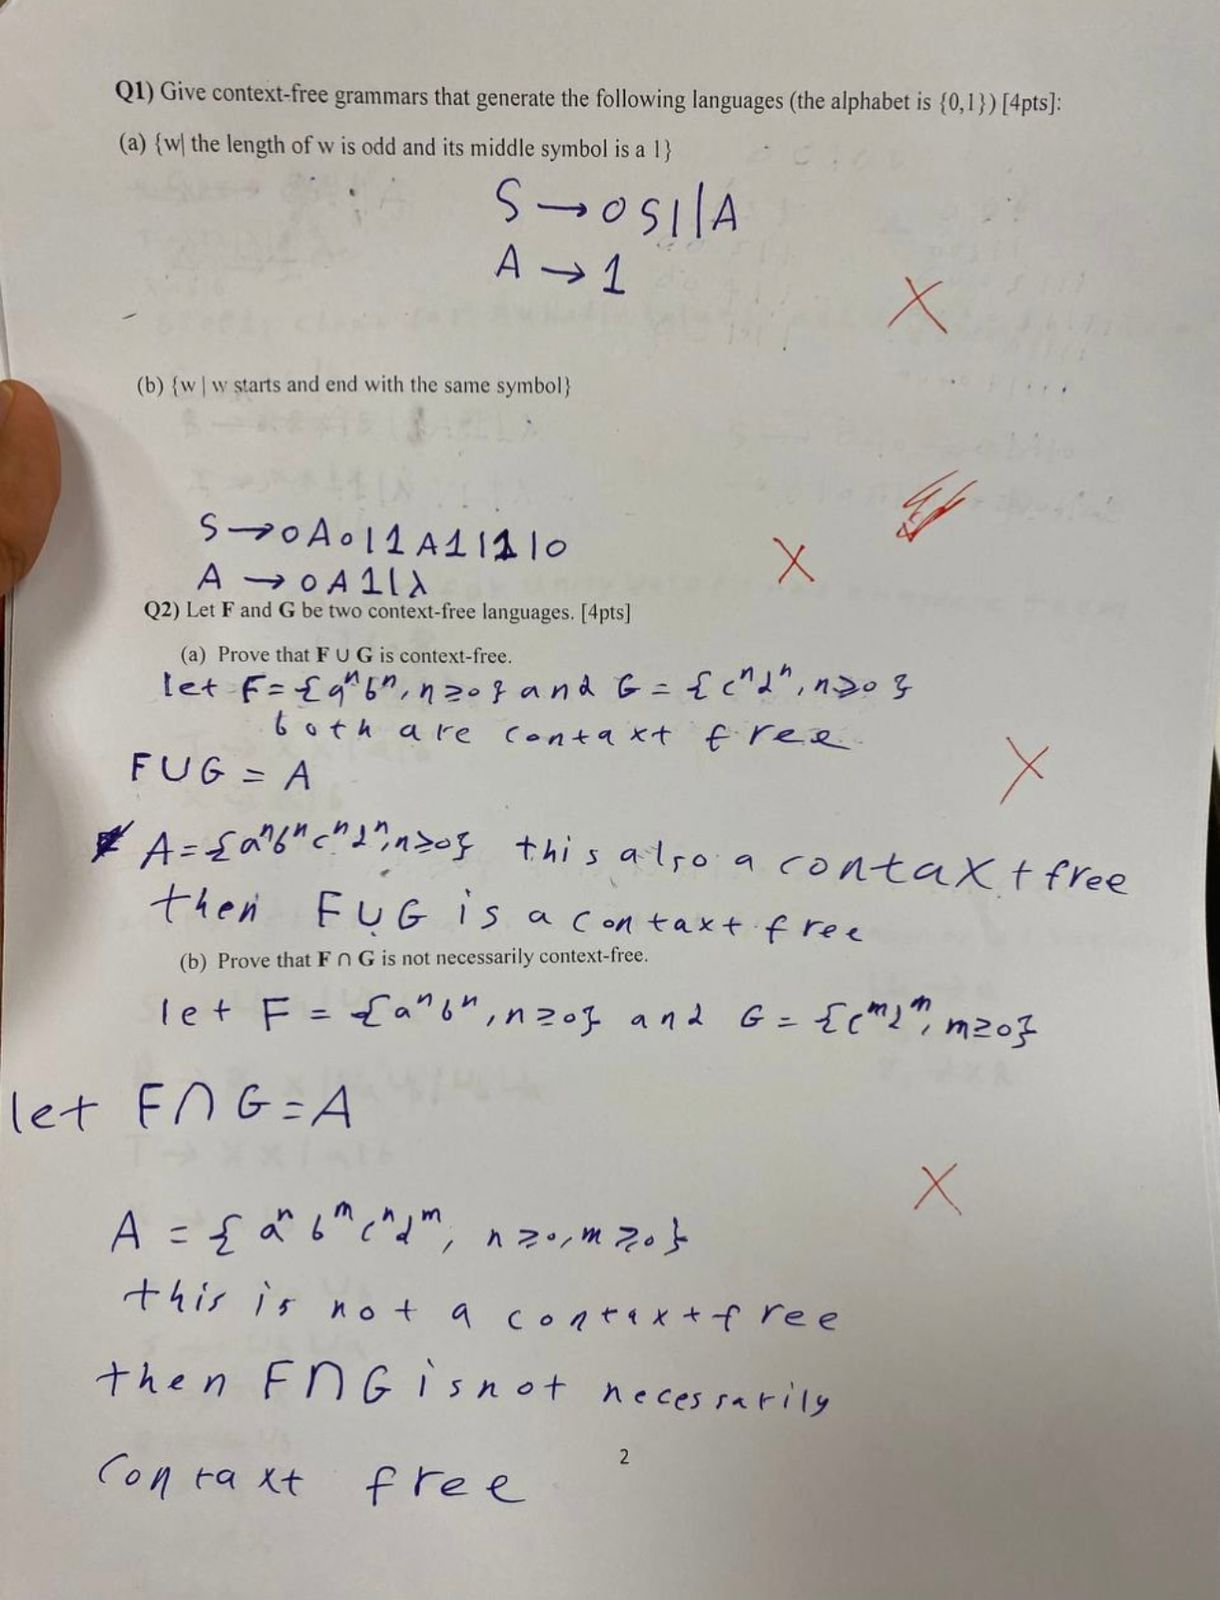 Q1) Give context-free grammars that generate the following languages (the alphabet is {0,1}) [4pts]:
(a) {w| the length of w is odd and its middle symbol is a 1}
S → 0S1|A
A → 1
(b) {w | w starts and end with the same symbol}
S → 0A0|1A1|1|0
A → 0A1|λ
Q2) Let F and G be two context-free languages. [4pts]
(a) Prove that F ∪ G is context-free.
let F = {aⁿbⁿ, n≥0} and G = {cⁿdⁿ, n≥0}
both are contaxt free
F∪G = A
A = {aⁿbⁿcⁿdⁿ, n≥0} this also a contaxt free
then F∪G is a contaxt free
(b) Prove that F ∩ G is not necessarily context-free.
let F = {aⁿbⁿ, n≥0} and G = {cᵐdᵐ, m≥0}
let F∩G = A
A = {aⁿbᵐcⁿdᵐ, n≥0, m≥0}
this is not a contaxt free
then F∩G is not necessarily
contaxt free
2